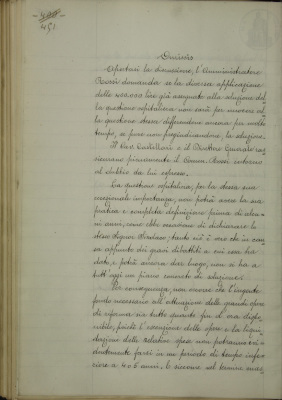 451
Omissis
Apertasi la discussione, l'Amministratore
Rossi domanda se la diversa applicazione
delle 400.000 lire già assegnate alla soluzione del
la quistione ospitaliera non sarà per nuocere al
la quistione stessa differendone ancora per molto
tempo, se pure non pregiudicandone, la soluzione.
Il Cav. Castellani e il Direttore Generale ras
sicurano pienamente il Comm. Rossi intorno
al dubbio da lui espresso.
La quistione ospitaliera, per la stessa sua
eccezionale importanza, non potrà avere la sua
pratica e completa definizione prima di alcu
ni anni, come ebbe occasione di dichiarare lo
stesso signor Sindaco; tanto ciò è vero che in cau
sa appunto dei gravi dibattiti a cui essa ha
dato, e potrà ancora dar luogo, non si ha a
tutt'oggi un piano concreto di soluzione.
Per conseguenza, non essendo che l'ingente
fondo necessario alla attuazione delle grandi opere
di riforma sia tutto quanto fin d'ora dispo
nibile, poiché l'esecuzione delle opere e la liqui
dazione delle relative spese non potranno evi
dentemente farsi in un periodo di tempo infe
riore a 4 o 5 anni. E siccome nel termine mas